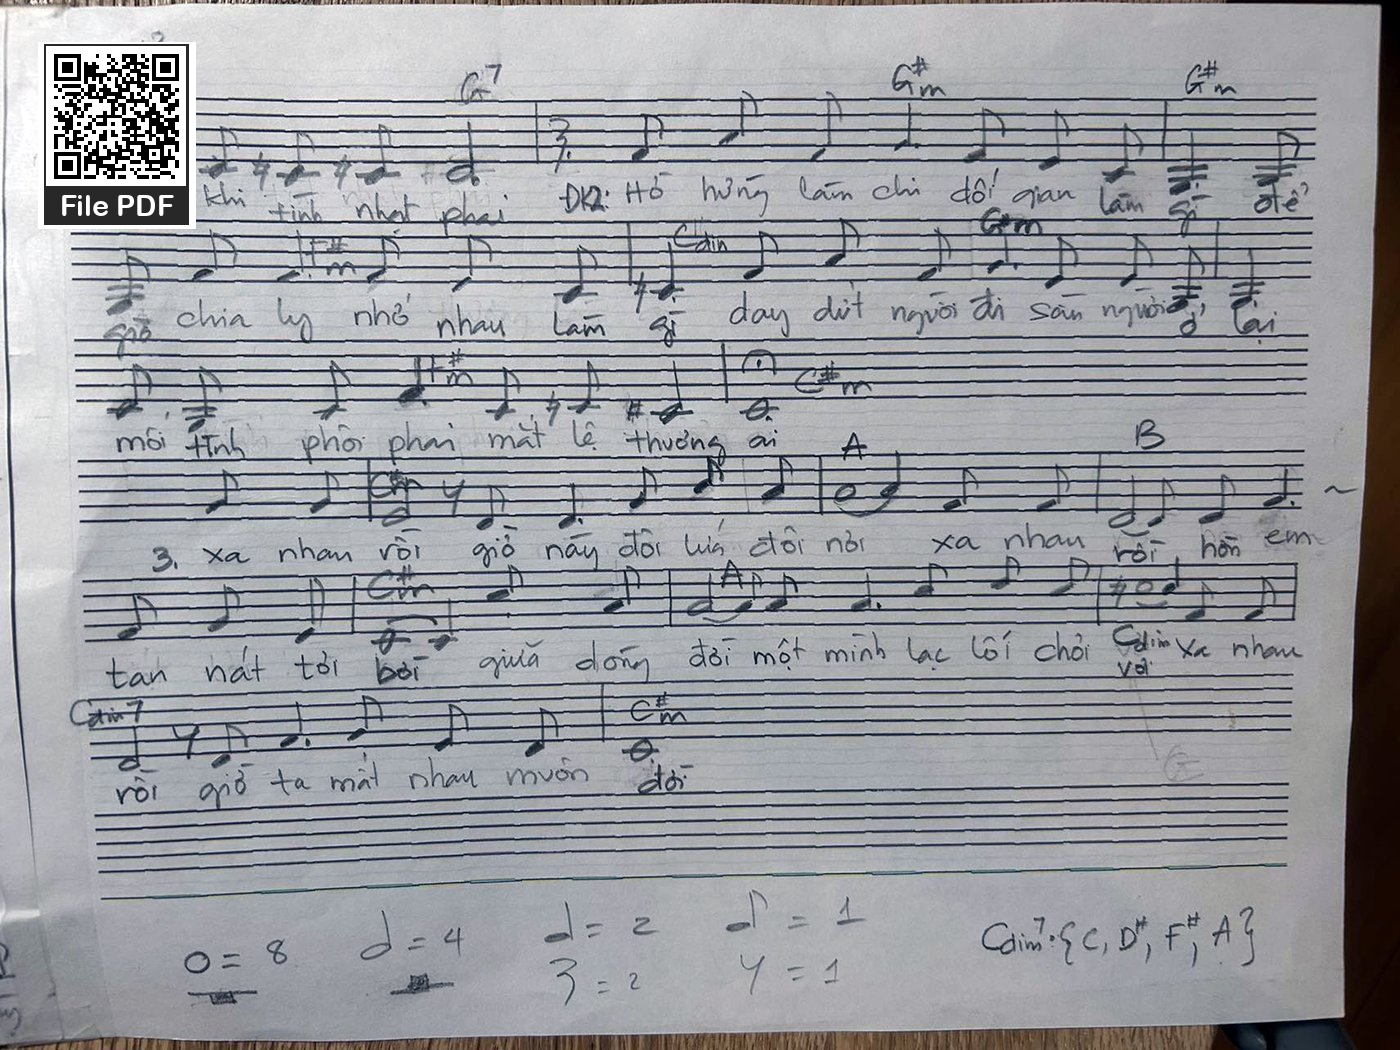 G7 G#m G#m
khi tình nhạt phai ĐK2: Hờ hững làm chi dối gian làm gì để
F#m Cdim G#m
giờ chia ly nhớ nhau làm gì day dứt người đi sao người ở lại
F#m C#m
môi tình phôi phai mắt lệ thương ai
C#m A B
3. xa nhau rồi giờ này đôi lứa đôi nơi xa nhau rồi hồn em
C#m A
tan nát tơi bời giữa dòng đời một mình lạc lối chơi vơi xa nhau
Cdim
Cdim7 C#m
rồi giờ ta mất nhau muôn đời
G
= 8 = 4 = 2 = 1
= 2 = 1
Cdim7: {C, D#, F#, A}
File PDF